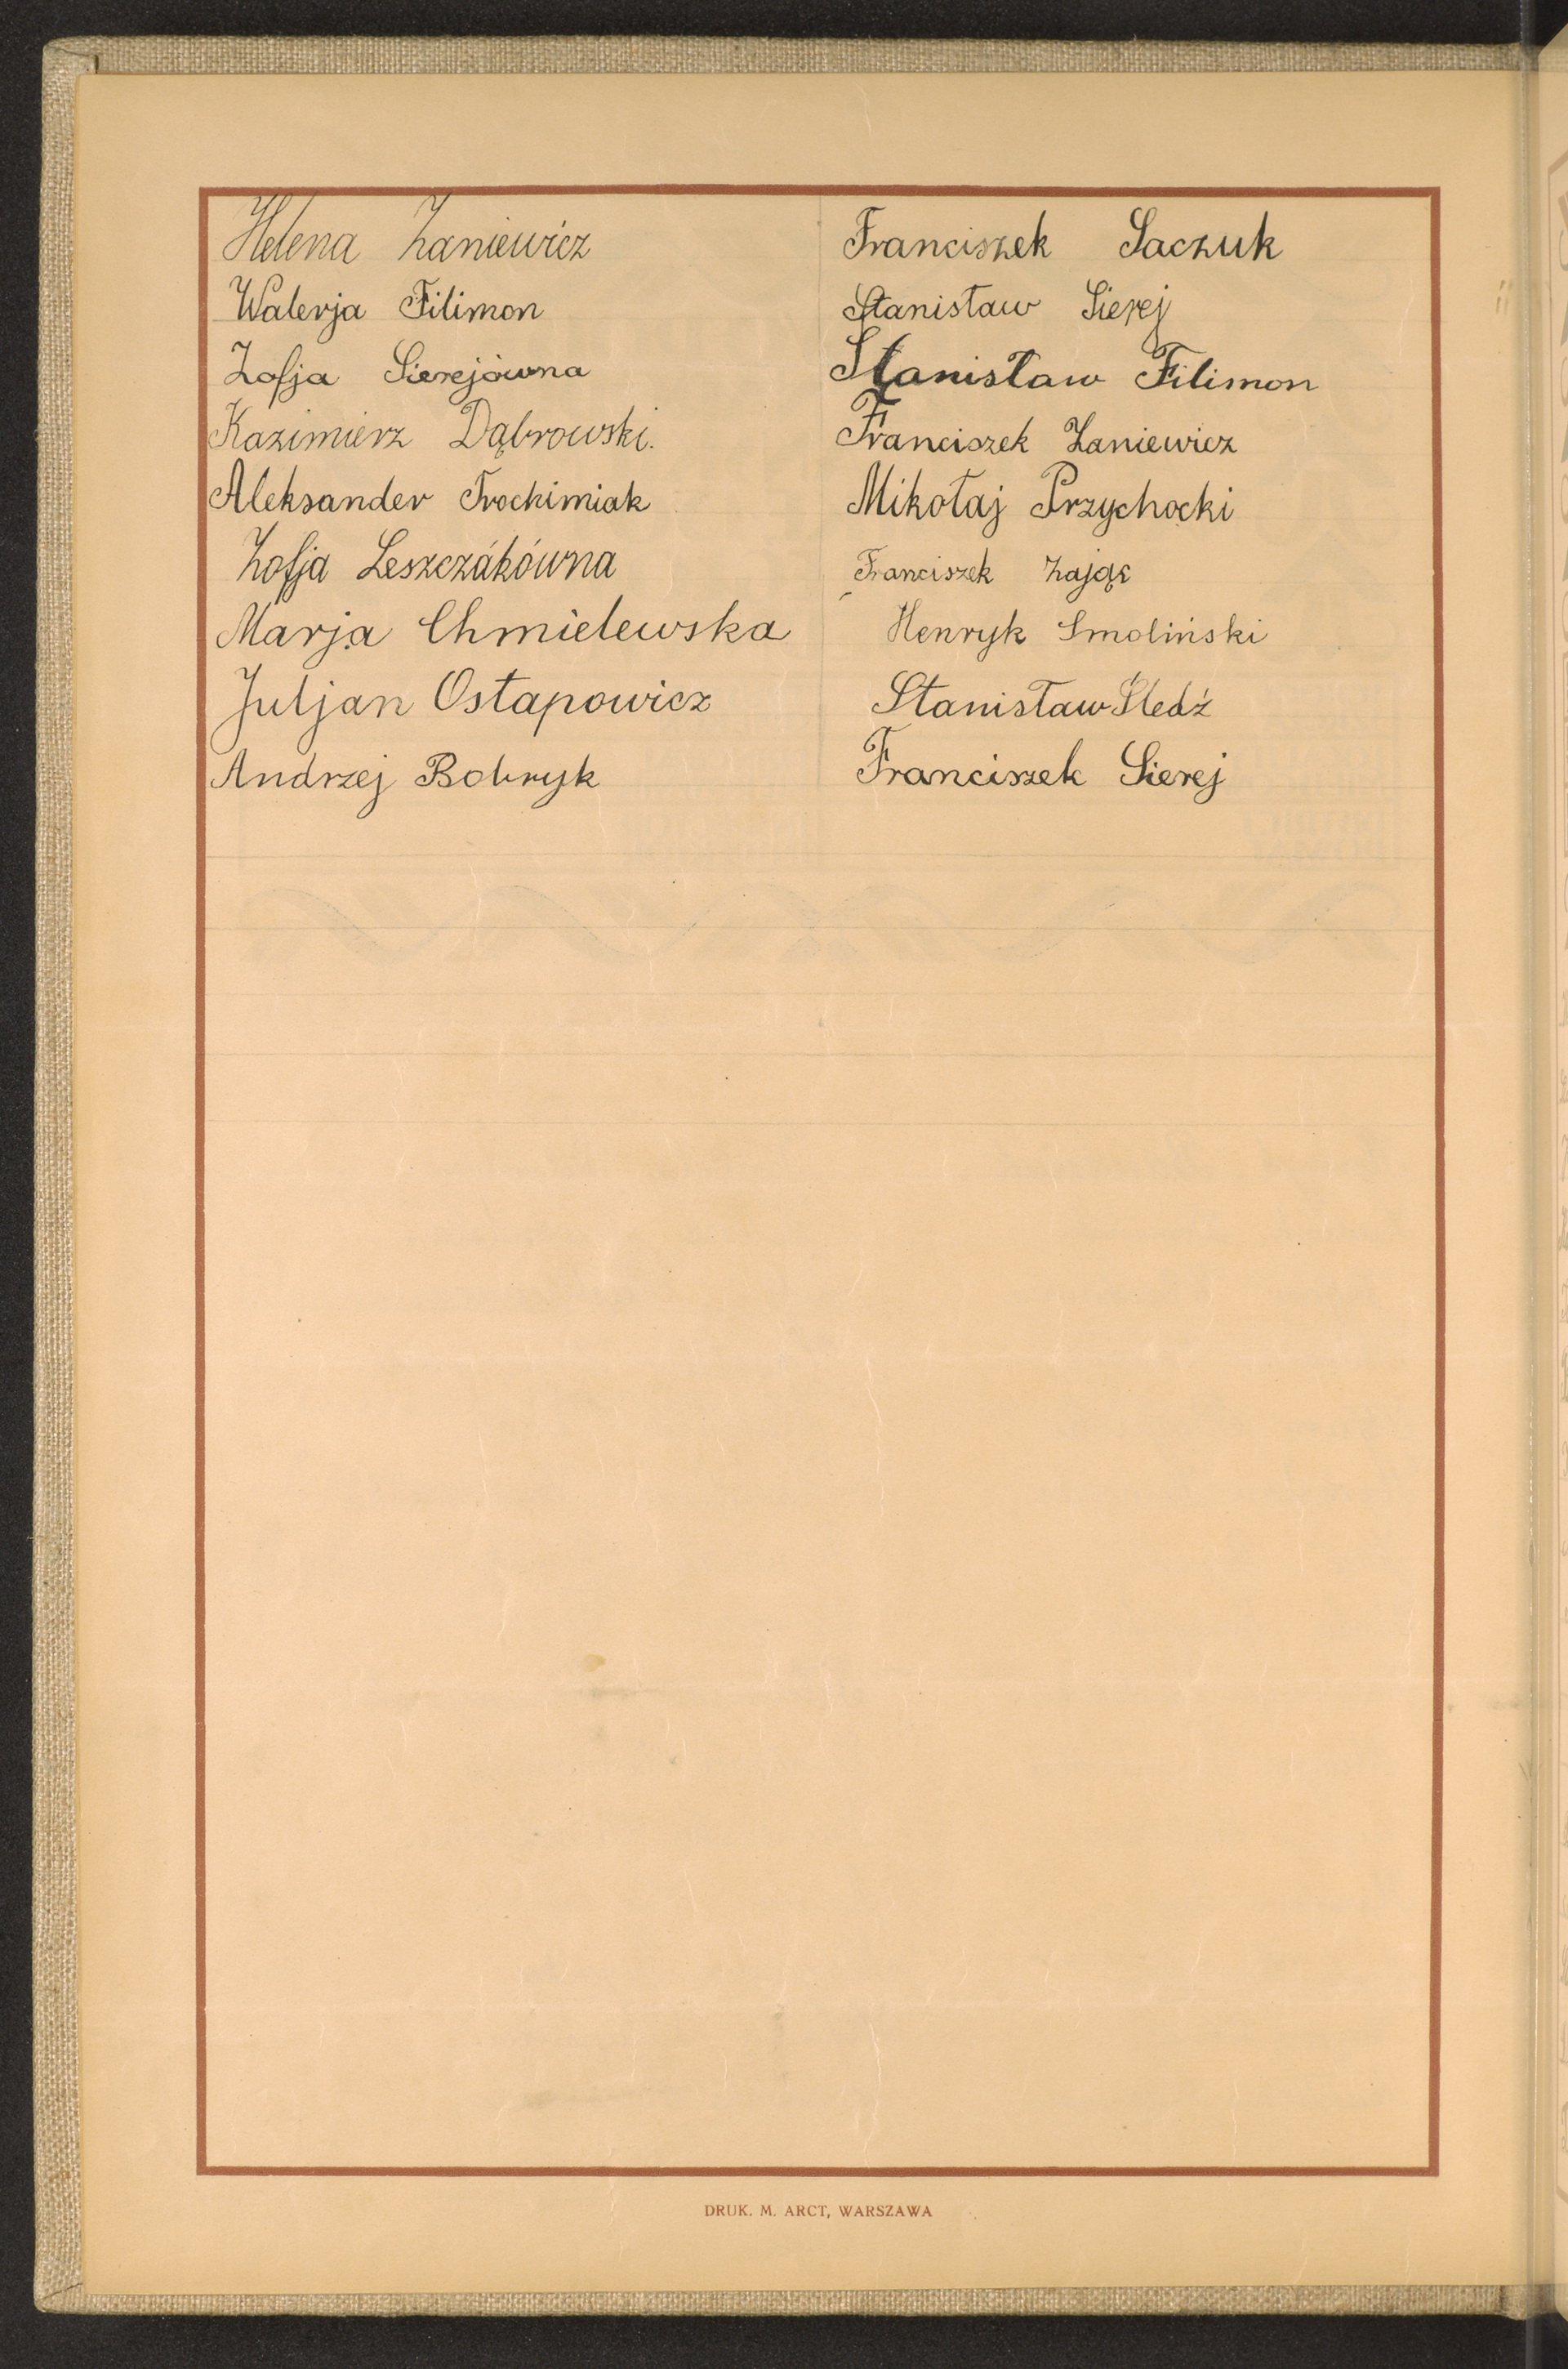 Helena Zaniewicz
Walerja Filimon
Zofja Sierejówna
Kazimierz Dąbrowski.
Aleksander Trochimiak
Zofja Leszczákówna
Marja Chmielewska
Juljan Ostapowicz
Andrzej Bobryk
Franciszek Saczuk
Stanisław Sierej
Stanisław Filimon
Franciszek Zaniewicz
Mikołaj Przychocki
Franciszek Zając
Henryk Smoliński
Stanisław Śledź
Franciszek Sierej
DRUK. M. ARCT, WARSZAWA